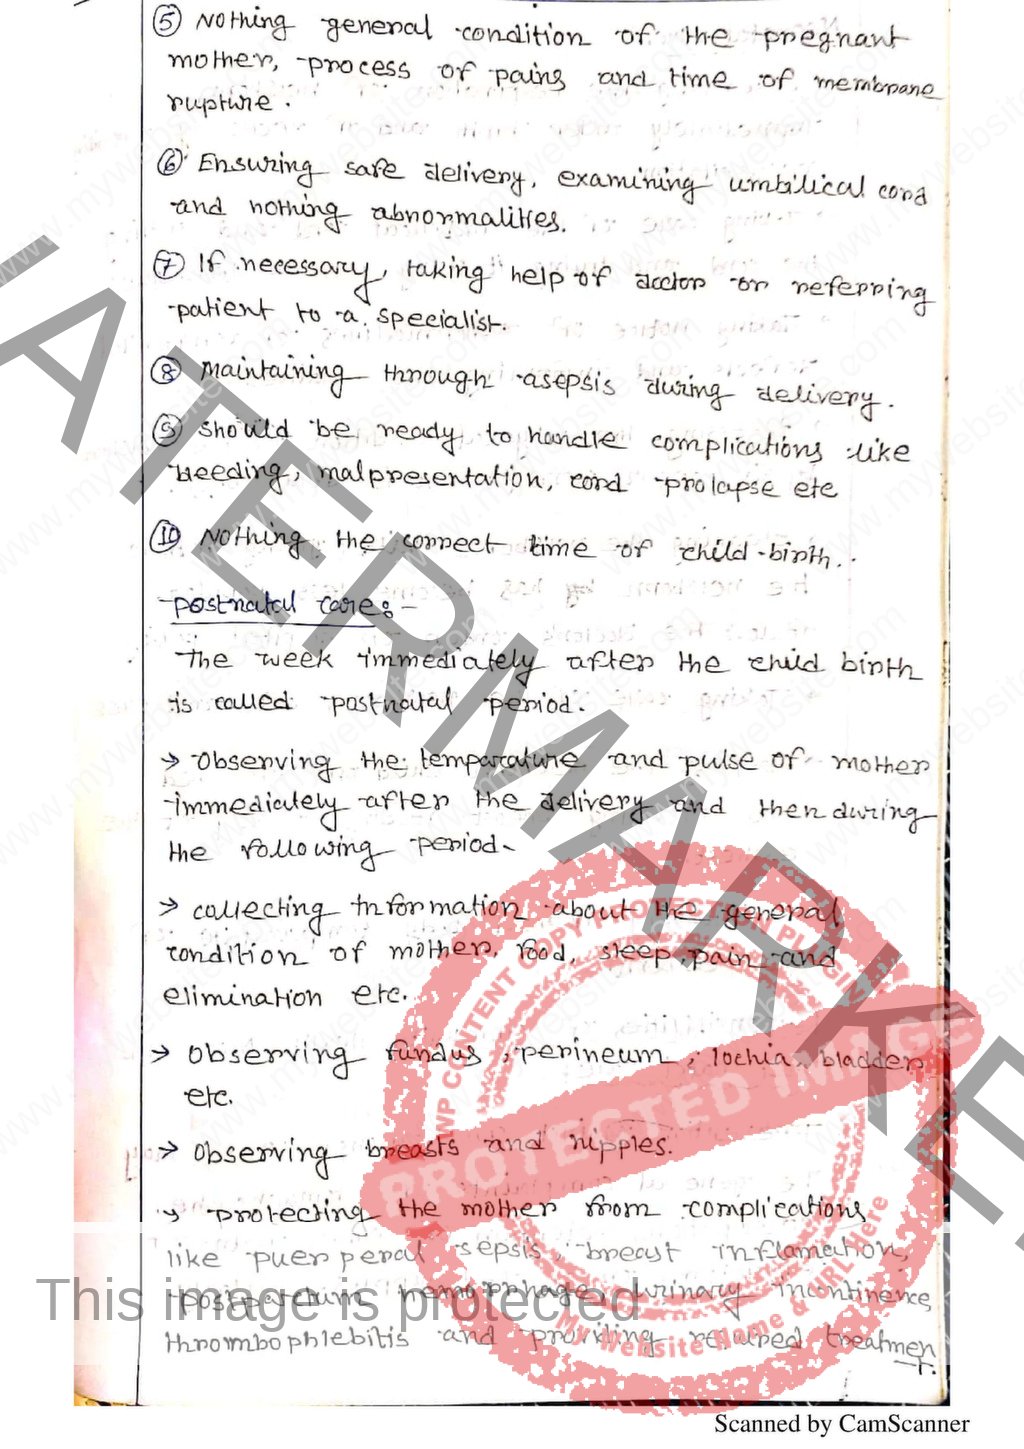 ⑤ Nothing general condition of the pregnant
mother, process of pains and time of membrane
rupture.
⑥ Ensuring safe delivery, examining umbilical cord
and nothing abnormalities.
⑦ If necessary, taking help of doctor or referring
patient to a specialist.
⑧ Maintaining through asepsis during delivery.
⑨ Should be ready to handle complications like
bleeding, malpresentation, cord prolapse etc
⑩ Nothing the correct time of child-birth.
Postnatal care:-
The week immediately after the child birth
is called postnatal period.
→ Observing the temparature and pulse of mother
immediately after the delivery and then during
the following period.
→ Collecting information about the general
condition of mother, food, sleep, pain and
elimination etc.
→ Observing fundus, perineum, lochia, bladder
etc.
→ Observing breasts and nipples.
→ Protecting the mother from complications
like puerperal sepsis, breast inflamation,
postpartum hemorrhage, urinary incontinence,
thrombophlebitis and providing required treatment.
WATERMARKED
WP CONTENT COPY PROTECTION PLUGIN
PROTECTED IMAGE
My Website Name & URL Here
This image is protected
www.mywebsite.com
Scanned by CamScanner